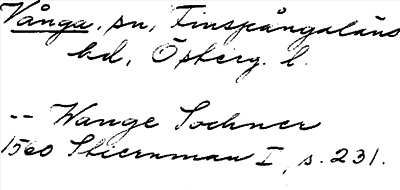 Vånga, sn, Finspångaläns
bd, Österg. l.
-- Wange Sochner
1560 Stiernman I, s. 231.